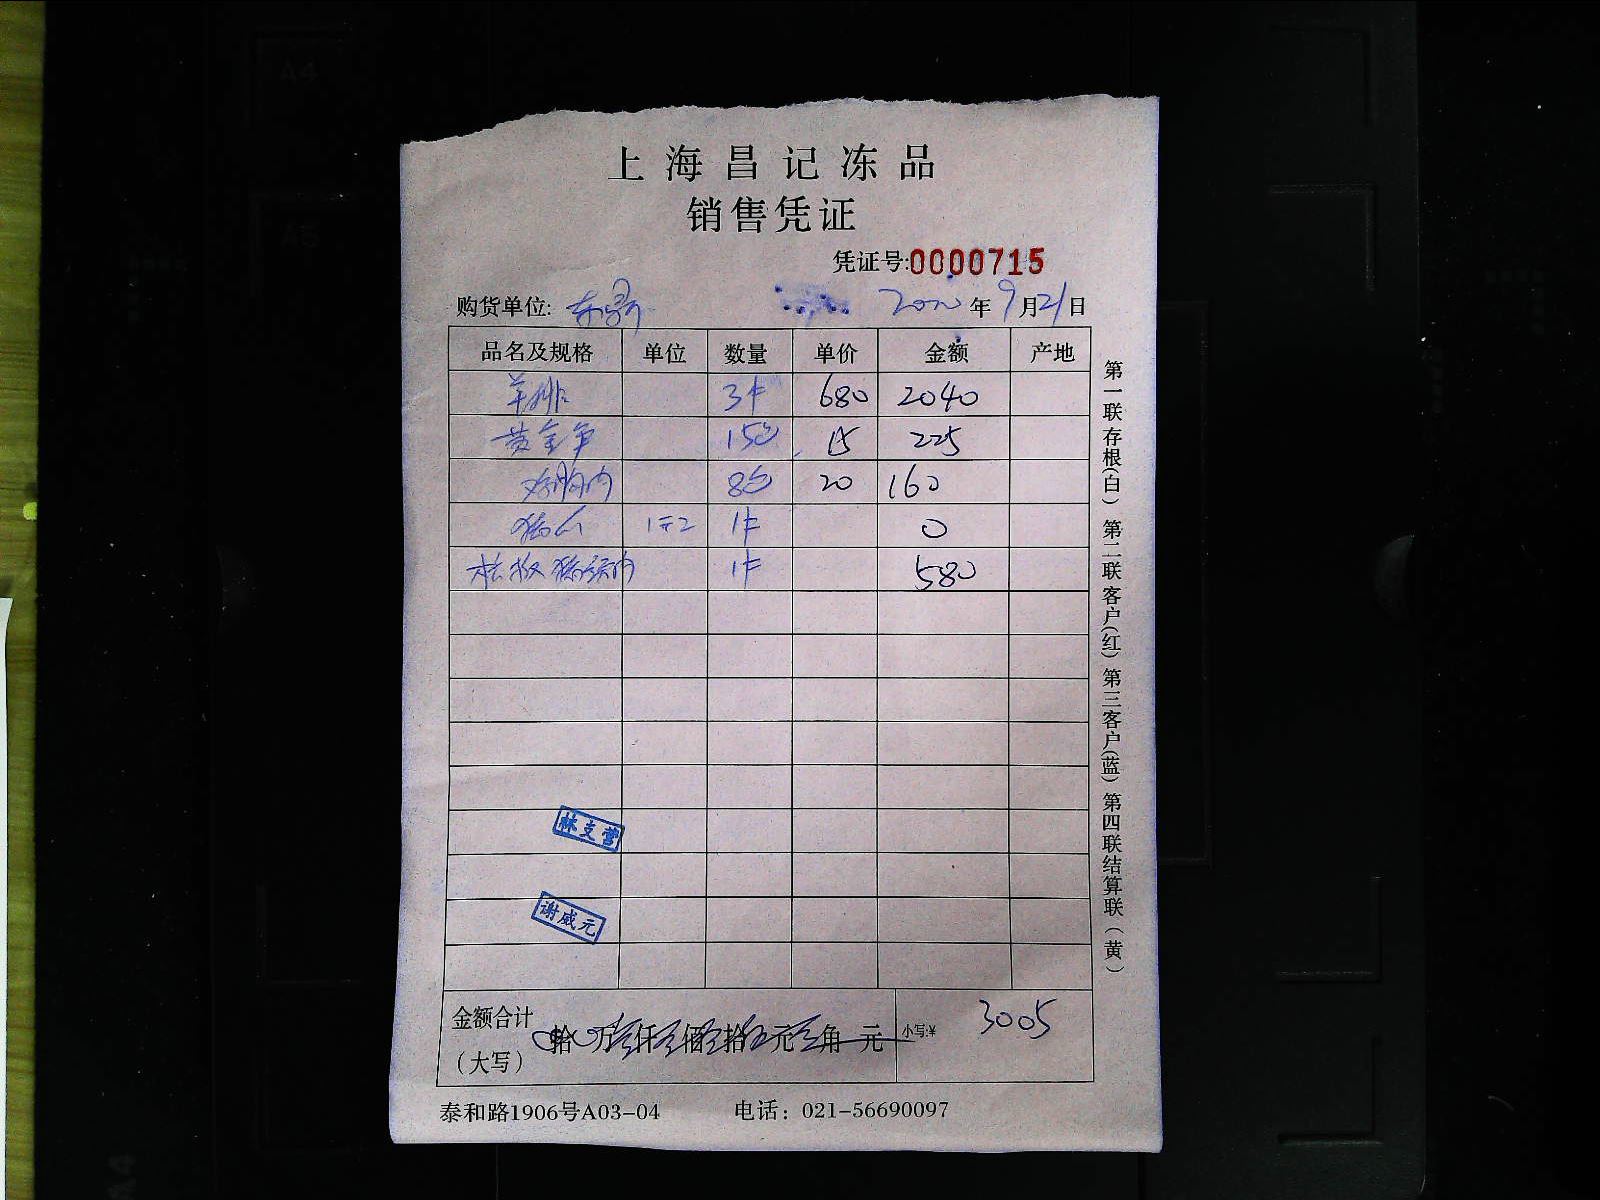 上海昌记冻品
销售凭证
凭证号:0000715
购货单位: 2020年9月21日
品名及规格 单位 数量 单价 金额 产地
羊排 3件 680 2040
黄金 15包 15 225
8包 20 160
1件 0
猪颈肉 1件 580
林支营
谢威元
金额合计 拾 万 仟 佰 拾 元 角 元 小写:¥ 3005
(大写)
泰和路1906号A03-04 电话：021-56690097
第一联存根(白) 第二联客户(红) 第三客户(蓝) 第四联结算联(黄)
A4
A5